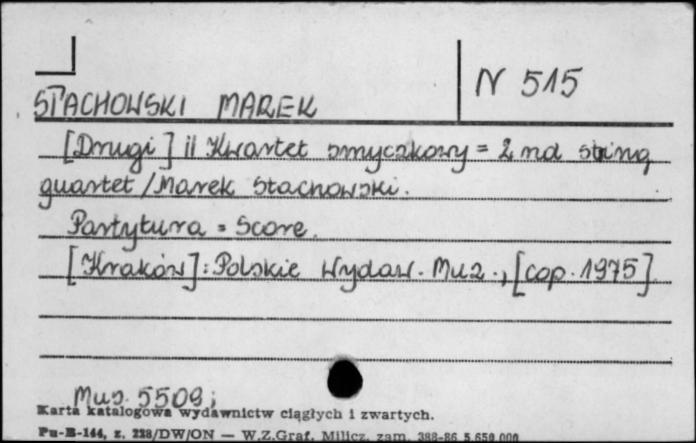 N 515
STACHOWSKI MAREK
[Drugi] II Kwartet smyczkowy = 2nd string
quartet / Marek Stachowski.
Partytura = Score.
[Kraków] : Polskie Wydaw. Muz., [cop. 1975]
Mus. 5509;
Karta katalogowa wydawnictw ciągłych i zwartych.
Pu-B-144, z. 228/DW/ON — W.Z.Graf. Milicz, zam. 388-86 5.650.000